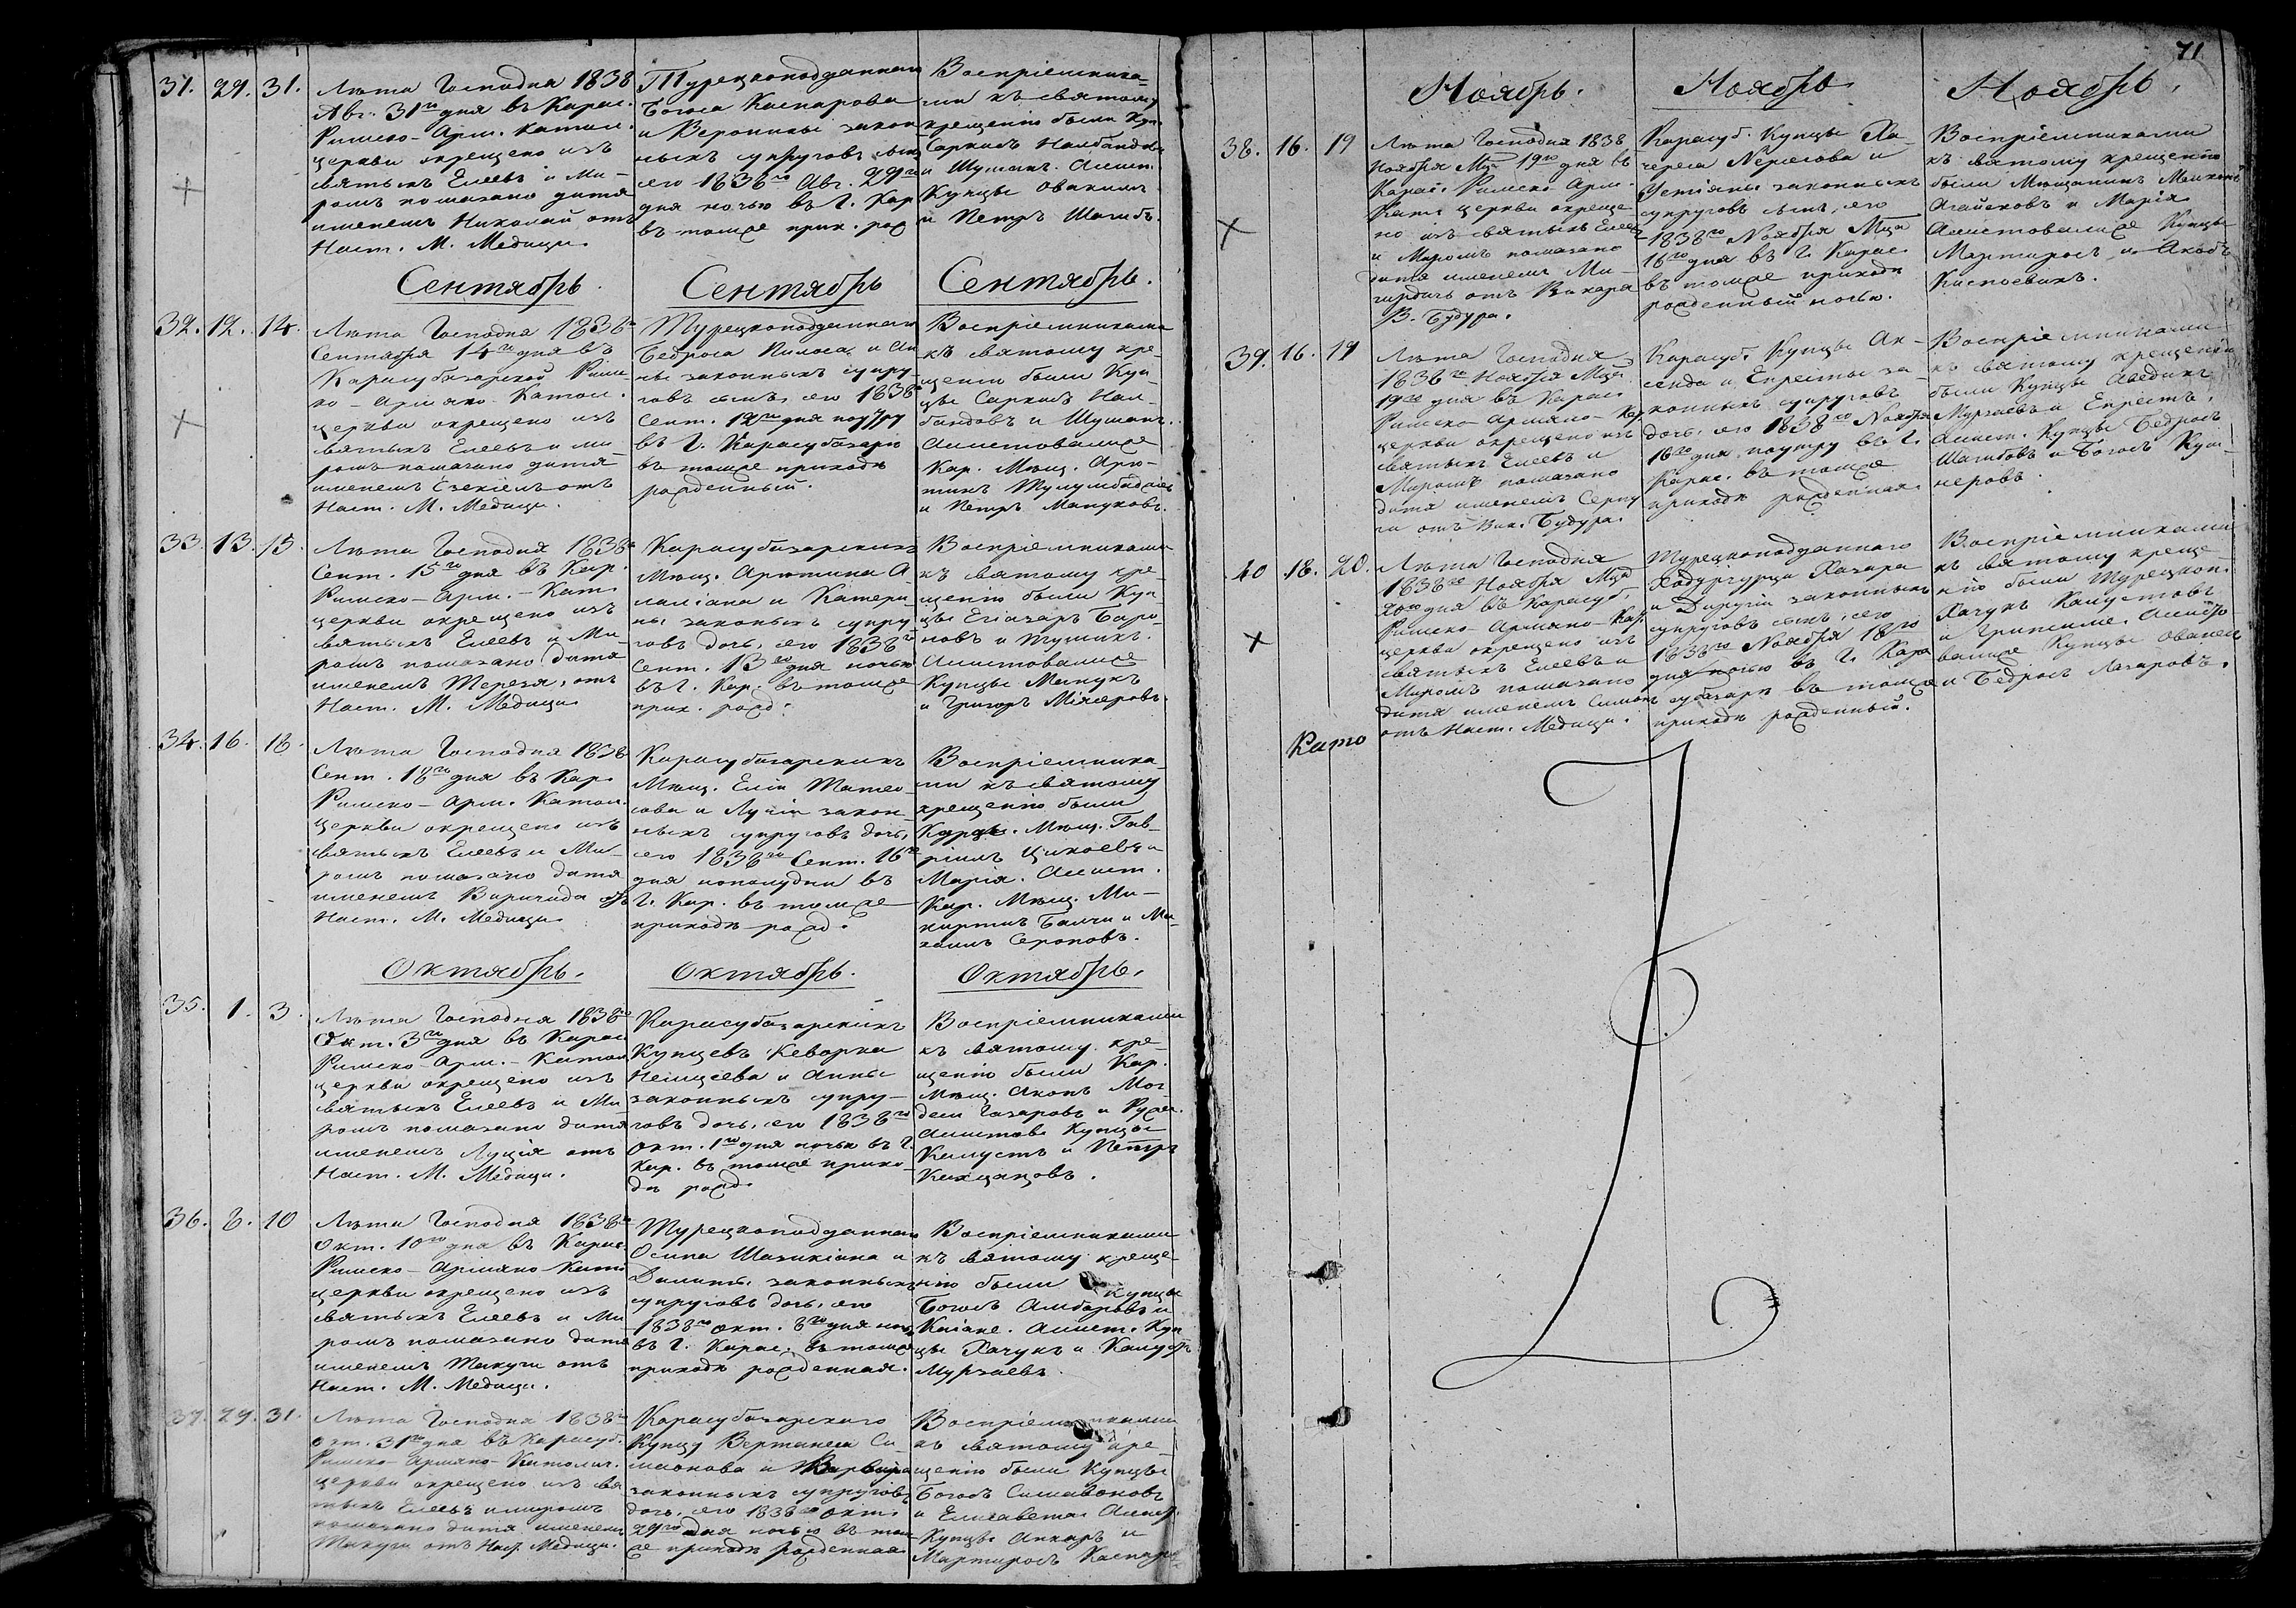 31. 29. 31.
Лѣта Господня 1838
Авг. 31го дня въ Карас.
Римско-Арм. Катол.
церкви окрещено изъ
святыхъ Елеевъ и Ми-
ромъ помазано дитя
именемъ Николай отъ
Наст. М. Медици.
Турецкоподданныхъ
Богоса Каспарова
и Вероники закон
ныхъ супруговъ сынъ
его 1838го Авг. 29го
дня ночью въ Г. Кар.
въ томже прих. рож
Воспріемника-
ми къ святому
крещенію были Куп.
Саркисъ Налбандовъ
и Шушанъ. Ассист.
Купцы Овакимъ
и Петръ Шагибъ.
Сентябрь.
Сентябрь
Сентябрь.
32. 12. 14.
Лѣта Господня 1838го
Сентября 14го дня въ
Карасубазарской Римс-
ко-Армяно Катол.
церкви окрещено изъ
святыхъ Елеевъ и ми-
ромъ помазано дитя
именемъ Езекіель отъ
Наст. М. Медици.
Турецкоподданныхъ
Бедроса Пилоса и Ан
ны законныхъ супру-
говъ сынъ, его 1838
Сент. 12го дня поутру
въ Г. Карасубазарѣ
въ томже приходѣ
рожденный.
Воспріемниками
къ святому кре-
щенію были Куп-
цы Саркисъ Нал-
бандовъ и Шушанъ.
Ассистовавшіе
Кар. Мѣщ. Арю-
тинъ
и Петръ Мануковъ.
33. 13. 15.
Лѣта Господня 1838го
Сент. 15го дня въ Кар.
Римско-Арм.-Кат.
церкви окрещено изъ
святыхъ Елеевъ и Ми-
ромъ помазано дитя
именемъ Терезя, отъ
Наст. М. Медици
Карасубазарскихъ
Мѣщ. Арютина А
и Катери-
ны законныхъ супру
говъ дочь, его 1838го
Сент. 13го дня ночью
въ Г. Кар. въ томже
прих. рожд.
Воспріемниками
къ святому кре-
щенію были Куп-
цы Егіазаръ Баро-
новъ и Тушикъ.
Ассистовавшіе
Купцы Манукъ
и Григоръ Михаеровъ.
34. 16. 18.
Лѣта Господня 1838
Сент. 18го дня въ Кар.
Римско-Арм. Катол.
церкви окрещено изъ
святыхъ Елеевъ и Ми-
ромъ помазано дитя
именемъ отъ
Наст. М. Медици
Карасубазарскихъ
Мѣщ. Еліи Матео-
сова и Лучіи закон-
ныхъ супруговъ дочь,
его 1838го Сент. 16го
дня пополудни въ
Г. Кар. въ томже
приходѣ рожд.
Воспріемника-
ми къ святому
крещенію были
Мѣщ. Гав-
ріилъ и
Марія. Ассист.
Кар. Мѣщ. Ми-
киртичъ Балчи и Ми-
хаилъ Сероповъ.
Октябрь.
Октябрь.
Октябрь.
35. 1. 3.
Лѣта Господня 1838го
Окт. 3го дня въ Карас.
Римско-Арм.-Катол
церкви окрещено изъ
святыхъ Елеевъ и Ми
ромъ помазано дитя
именемъ Луція отъ
Наст. М. Медици.
Карасубазарскихъ
Купцевъ Кеворка
и Анны
законныхъ супру-
говъ дочь, его 1838го
Окт. 1го дня ночью въ Г.
Кар. въ томже прихо-
дѣ рожд.
Воспріемниками
къ святому кре-
щенію были Кар.
Мѣщ. Акопъ Мог
деси Газаровъ и
Ассистов. Купцы
Калустъ и Петръ
36. 8. 10
Лѣта Господня 1838го
Окт. 10го дня въ Карас.
Римско-Армяно Кат.
церкви окрещено изъ
святыхъ Елеевъ и Ми
ромъ помазано дитя
именемъ Такуги отъ
Наст. М. Медици.
Турецкоподданныхъ
Осипа и
законныхъ
супруговъ дочь, его
1838го Окт. 8го дня ночью
въ Г. Карас. въ томже
приходѣ рожденная.
Воспріемниками
къ святому креще-
нію были Купцы
Богосъ Амбаровъ и
Ассист. Куп
цы Хачукъ и Калустъ
Мурзаевъ.
37. 29. 31.
Лѣта Господня 1838го
Окт. 31го дня въ Карасуб.
Римско-Армяно-Католич.
церкви окрещено изъ свя
тыхъ Елеевъ и миромъ
помазано дитя именемъ
Такуги отъ Наст. Медици.
Карасубазарскаго
Купцу Вертанеса Си-
маонова и Варвары
законныхъ супруговъ
дочь, его 1838го Окт.
29го дня ночью въ том
же приходѣ рожденная
Воспріемниками
къ святому кре-
щенію были Купцы
Богосъ Симавоновъ
и Елисавета. Ассист.
Купцы и
Мартиросъ Каспаро
71.
Ноябрь.
Ноябрь
Ноябрь.
38. 16. 19
Лѣта Господня 1838
Ноября Мца 19го дня въ
Карас. Римско Арм.
Кат. церкви окреще
но изъ святыхъ Елеевъ
и Миромъ помазано
дитя именемъ Ми-
гирдичь отъ Викара
В. Будура.
Карасуб. Купцы Ха-
череса Нерсесова и
законныхъ
супруговъ сынъ, его
1838го Ноября Мца
16го дня въ Г. Карас.
въ томже приходѣ
рожденный ночью.
Воспріемниками
къ святому крещенію
были Мѣщанинъ
и Марія
Ассистовавшіе Купцы
Мартиросъ и Акобъ
39. 16. 19
Лѣта Господня
1838го Ноября Мца
19го дня въ Карас.
Римско Армяно-Кат
церкви окрещено изъ
святыхъ Елеевъ и
Миромъ помазано
дитя именемъ Серпу
ги отъ Вик. Будура.
Карасуб. Купцы Ак-
сенда и за-
конныхъ супруговъ
дочь, его 1838го Ноября
16го дня поутру въ Г.
Карас. въ томже
приходѣ рожденная.
Воспріемниками
къ святому крещенію
были Купцы Аведикъ
Мурзаевъ и
Ассист. Купцы Бедросъ
Шагибовъ и Богосъ Куш-
неровъ.
40 18. 20.
Лѣта Господня
1838го Ноября Мца
20го дня въ Карасуб.
Римско-Армяно-Кат.
церкви окрещено изъ
святыхъ Елеевъ и
Миромъ помазано
дитя именемъ Симонъ
отъ Наст. Медици.
Турецкоподданнаго
Хазара
и законныхъ
супруговъ сынъ, его
1838го Ноября 18го
дня ночью въ Г. Кара
субазарѣ въ томже
приходѣ рожденный.
Воспріемниками
къ святому креще-
нію были Турецкоп.
Хачукъ Калустовъ
и Ассисто
вавшіе Купцы Ованесъ
и Бедросъ Лазаровъ.